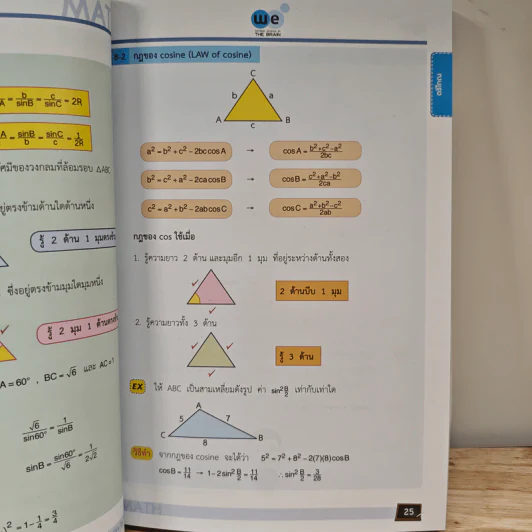 MAT
we
THE BRAIN
A = b/sinB = c/sinC = 2R
A = sinB/b = sinC/c = 1/2R
ศมีของวงกลมที่ล้อมรอบ △ABC
ยู่ตรงข้ามด้านใดด้านหนึ่ง
รู้ 2 ด้าน 1 มุมตรงข้าม
ซึ่งอยู่ตรงข้ามมุมใดมุมหนึ่ง
รู้ 2 มุม 1 ด้านตรงข้าม
A = 60° , BC = √6 และ AC = 1
√6/sin60° = 1/sinB
sinB = sin60°/√6 = 1/2√2
² = 1 - 1/4 = 3/4
8-2 กฎของ cosine (LAW of cosine)
C
b a
A B
c
a² = b² + c² - 2bc cosA → cosA = b²+c²-a²/2bc
b² = c² + a² - 2ca cosB → cosB = c²+a²-b²/2ca
c² = a² + b² - 2ab cosC → cosC = a²+b²-c²/2ab
กฎของ cos ใช้เมื่อ
1. รู้ความยาว 2 ด้าน และมุมอีก 1 มุม ที่อยู่ระหว่างด้านทั้งสอง
2 ด้านบีบ 1 มุม
2. รู้ความยาวทั้ง 3 ด้าน
รู้ 3 ด้าน
EX ให้ ABC เป็นสามเหลี่ยมดังรูป ค่า sin² B/2 เท่ากับเท่าใด
A
5 7
C B
8
วิธีทำ จากกฎของ cosine จะได้ว่า 5² = 7² + 8² - 2(7)(8)cosB
cosB = 11/14 → 1 - 2sin² B/2 = 11/14 ∴ sin² B/2 = 3/28
MATH
25